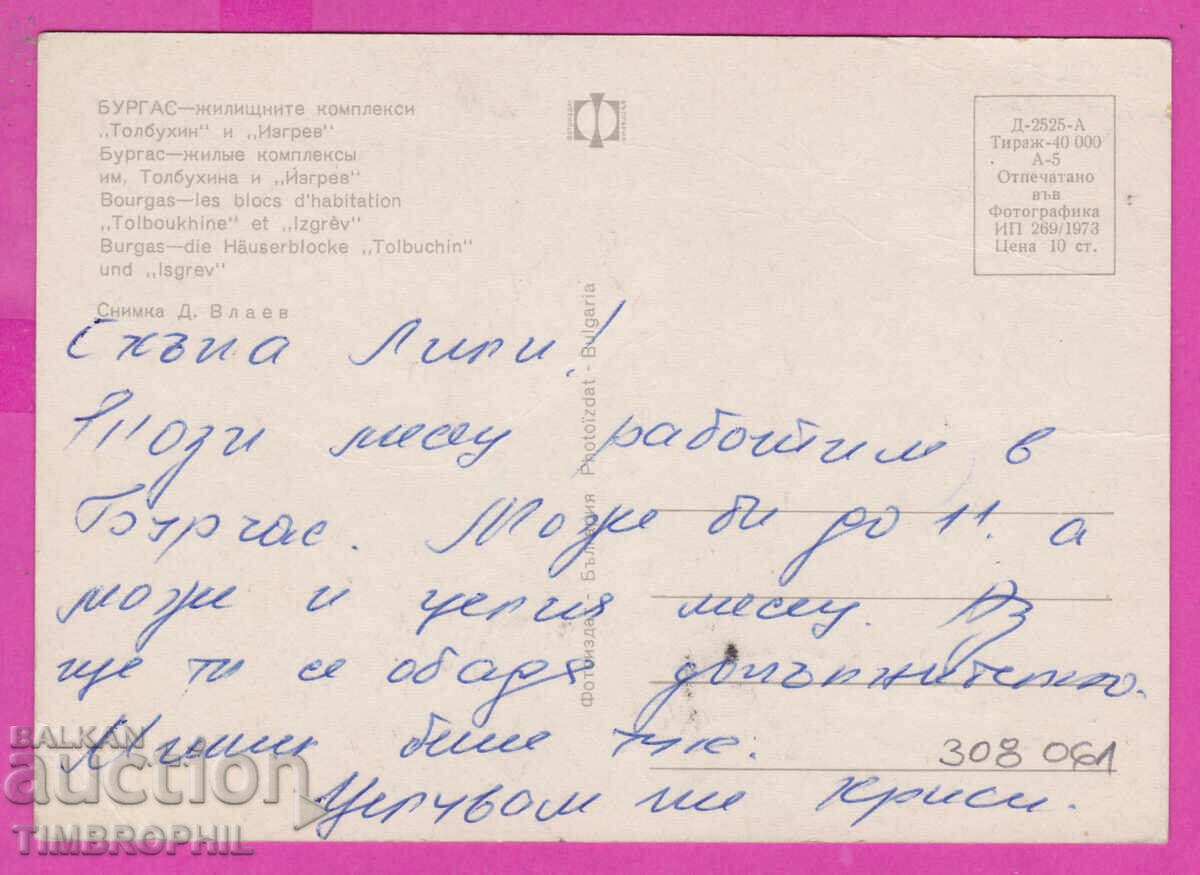 БУРГАС—жилищните комплекси
„Толбухин" и „Изгрев"
Бургас—жилые комплексы
им. Толбухина и „Изгрев"
Bourgas—les blocs d'habitation
„Tolboukhine" et „Izgrèv"
Burgas—die Häuserblocke „Tolbuchin"
und „Isgrev"
Снимка Д. Влаев
Д-2525-А
Тираж-40 000
А-5
Отпечатано
във
Фотографика
ИП 269/1973
Цена 10 ст.
Фотоиздат - България Photoïzdat - Bulgaria
Скъпа Лили!
Този месец работим в
Бургас. Може би до 11. а
може и целия месец. Аз
ще ти се обадя допълнително.
беше тук.
Целувам те Криси.
308 061
BALKAN
auction
TIMBROPHIL